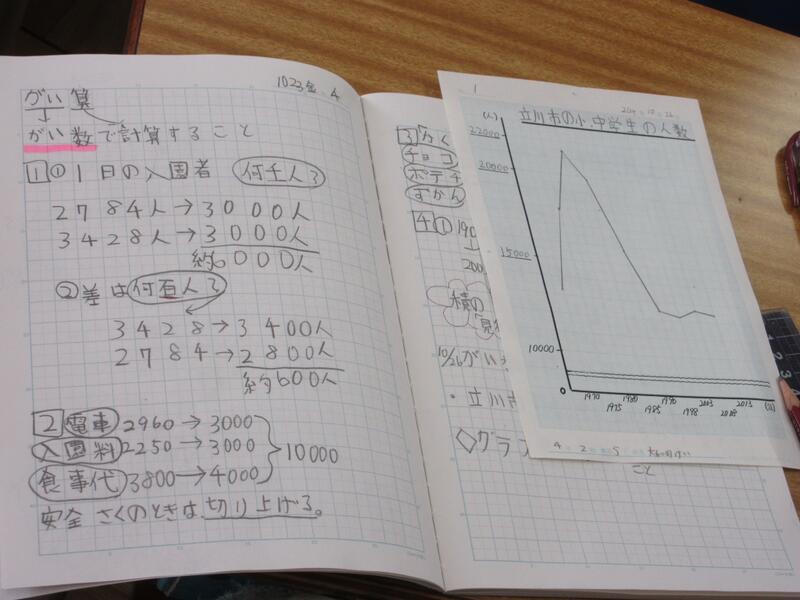 1023金 4
がい算
↓
がい数で計算すること
1 ① 1日の入園者 何千人?
2784人→3000人
3428人→3000人
約6000人
② 差は何百人?
3428→3400人
2784→2800人
約600人
2 電車 2960→3000
入園料 2250→3000
10000
食事代 3800→4000
安全さくのときは、切り上げる。
3
チョコ
ポテチ
ずかん
4 ① 190
200
積の
10/26 がい
・立川
◇グラフ
こと
1
立川市の小、中学生の人数
(人)
22000
20000
15000
10000
0
1970 1975 1980 1985 1990 1998 2003 2008 2013